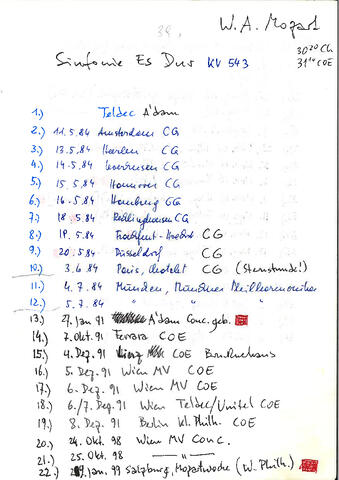 39.
W. A. Mozart
Sinfonie Es Dur KV 543
30 20 CG
31 14 COE
1.) Teldec A'dam
2.) 11.5.84 Amsterdam CG
3.) 13.5.84 Haarlem CG
4.) 14.5.84 Leverkusen CG
5.) 15.5.84 Hannover CG
6.) 16.5.84 Hamburg CG
7.) 18.5.84 Recklinghausen CG
8.) 19.5.84 Frankfurt-Hoechst CG
9.) 20.5.84 Düsseldorf CG
10.) 3.6.84 Paris, Chatelet CG (Sternstunde!)
11.) 4.7.84 München, Münchner Philharmoniker
12.) 5.7.84 " " "
13.) 27. Jan 91 A'dam Conc. geb.
14.) 7. Okt. 91 Ferrara COE
15.) 4. Dez. 91 COE
16.) 5. Dez. 91 Wien MV COE
17.) 6. Dez. 91 Wien MV COE
18.) 6./7. Dez. 91 Wien Teldec/Unitel COE
19.) 8. Dez. 91 Berlin kl. Philh. COE
20.) 24. Okt. 98 Wien MV Conc.
21.) 25. Okt. 98 — " —
22.) Jan. 99 Salzburg, Mozartwoche (W. Philh.)